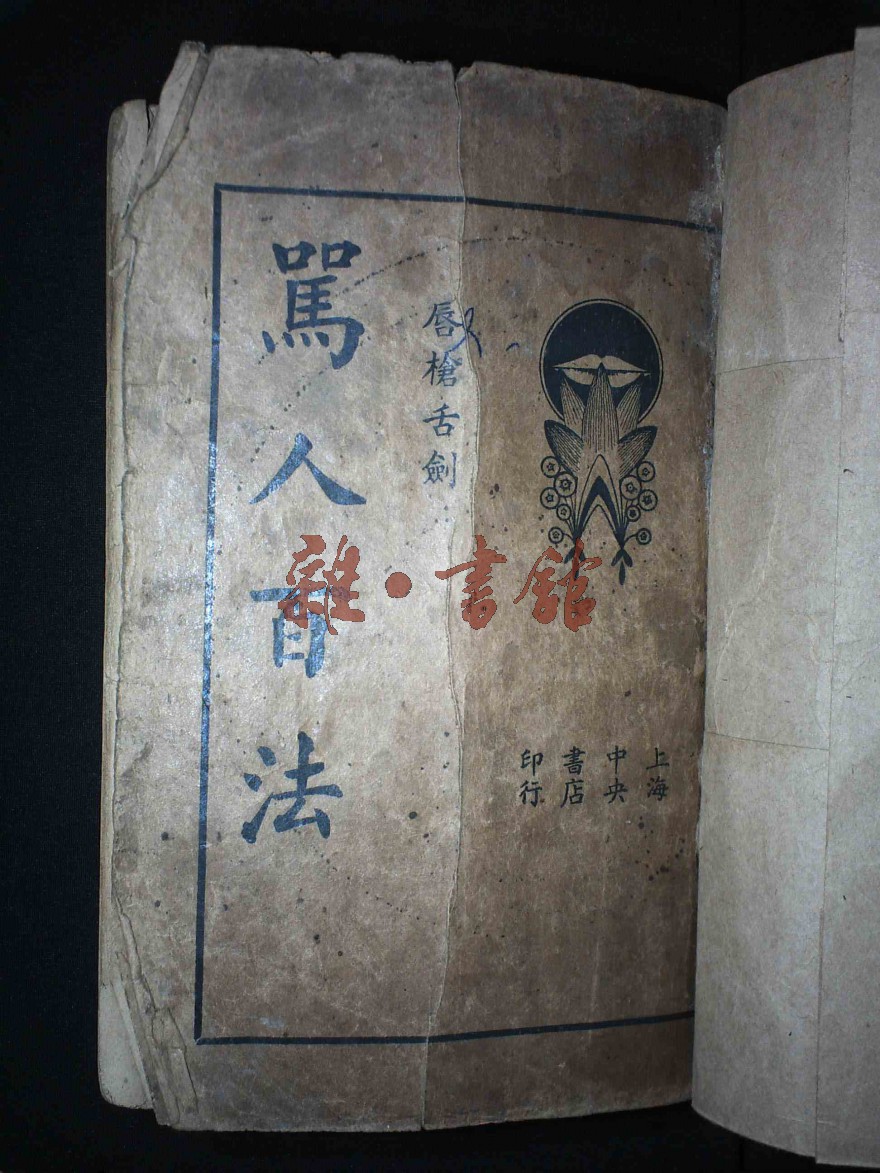 上海
中央
書店
印行
唇槍舌劍
駡人百法
雜·書館